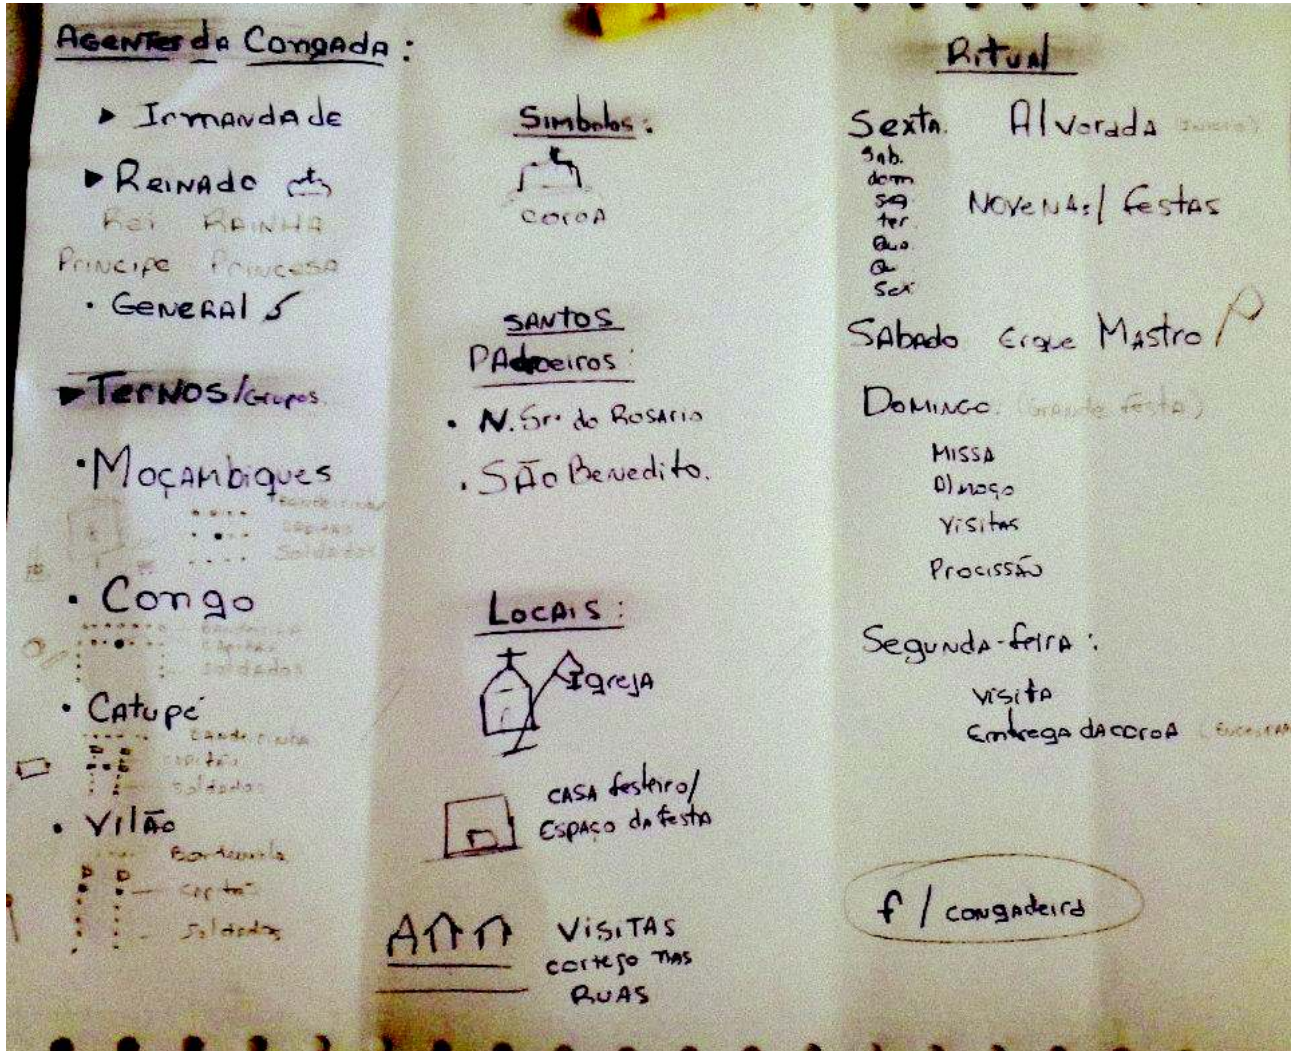 Agentes da Congada:
Irmandade
Reinado
Rei Rainha
Principe Princesa
General
Ternos/Grupos.
Moçambiques
Bandeirinha
Capitão
Soldados
Congo
Bandeirinha
Capitão
Soldados
Catupé
Bandeirinha
Capitão
Soldados
Vilão
Capitão
Soldados
Simbolos:
coroa
Santos
Padroeiros:
N. Srª do Rosario
São Benedito.
Locais:
Igreja
Casa festeiro/
Espaço da festa
Visitas
cortejo nas
Ruas
Ritual
Sexta. Alvorada
Sab.
dom
sg
ter.
Qua.
Q
Sex
Novenas/festas
Sabado Ergue Mastro
Domingo. (Grande festa)
Missa
Almoço
Visitas
Procissão
Segunda-feira:
visita
Entrega da coroa
f / congadeiro